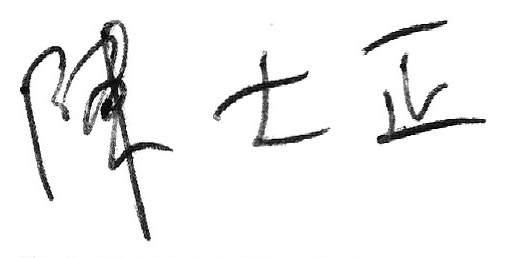 陳士正